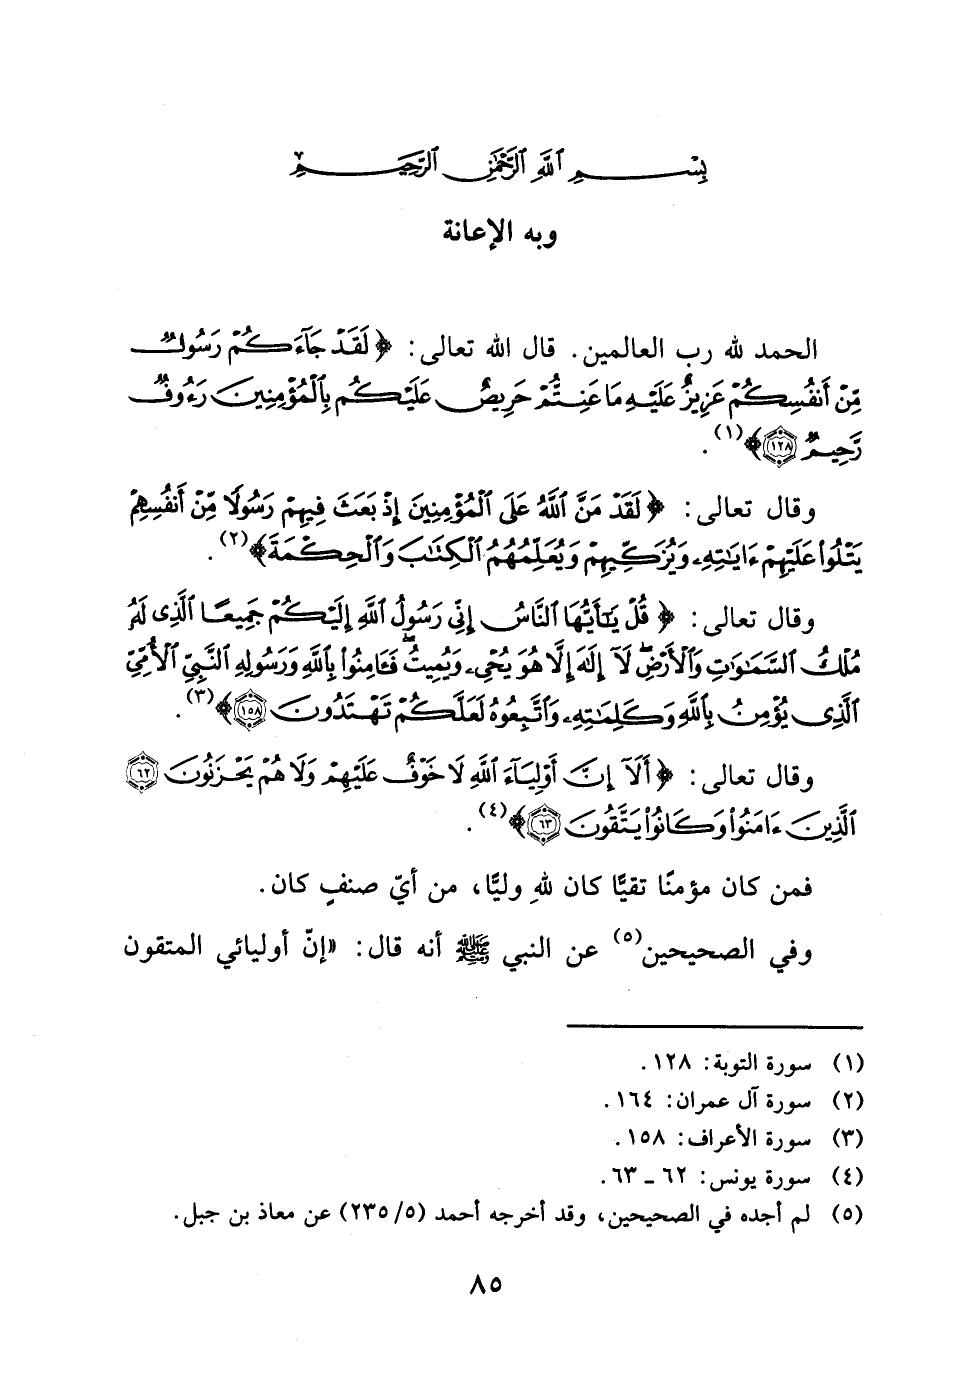 بِسْمِ ٱللَّهِ ٱلرَّحْمَٰنِ ٱلرَّحِيمِ
وبه الإعانة
الحمد لله رب العالمين. قال الله تعالى: ﴿لَقَدْ جَآءَكُمْ رَسُولٌ
مِّنْ أَنفُسِكُمْ عَزِيزٌ عَلَيْهِ مَا عَنِتُّمْ حَرِيصٌ عَلَيْكُم بِٱلْمُؤْمِنِينَ رَءُوفٌ
رَّحِيمٌ ١٢٨﴾(١).
وقال تعالى: ﴿لَقَدْ مَنَّ ٱللَّهُ عَلَى ٱلْمُؤْمِنِينَ إِذْ بَعَثَ فِيهِمْ رَسُولًا مِّنْ أَنفُسِهِمْ
يَتْلُوا۟ عَلَيْهِمْ ءَايَٰتِهِۦ وَيُزَكِّيهِمْ وَيُعَلِّمُهُمُ ٱلْكِتَٰبَ وَٱلْحِكْمَةَ﴾(٢).
وقال تعالى: ﴿قُلْ يَٰٓأَيُّهَا ٱلنَّاسُ إِنِّى رَسُولُ ٱللَّهِ إِلَيْكُمْ جَمِيعًا ٱلَّذِى لَهُۥ
مُلْكُ ٱلسَّمَٰوَٰتِ وَٱلْأَرْضِ ۖ لَآ إِلَٰهَ إِلَّا هُوَ يُحْىِۦ وَيُمِيتُ ۖ فَـَٔامِنُوا۟ بِٱللَّهِ وَرَسُولِهِ ٱلنَّبِىِّ ٱلْأُمِّىِّ
ٱلَّذِى يُؤْمِنُ بِٱللَّهِ وَكَلِمَٰتِهِۦ وَٱتَّبِعُوهُ لَعَلَّكُمْ تَهْتَدُونَ ١٥٨﴾(٣).
وقال تعالى: ﴿أَلَآ إِنَّ أَوْلِيَآءَ ٱللَّهِ لَا خَوْفٌ عَلَيْهِمْ وَلَا هُمْ يَحْزَنُونَ ٦٢
ٱلَّذِينَ ءَامَنُوا۟ وَكَانُوا۟ يَتَّقُونَ ٦٣﴾(٤).
فمن كان مؤمنًا تقيًّا كان للهِ وليًّا، من أيّ صنفٍ كان.
وفي الصحيحين(٥) عن النبي ﷺ أنه قال: «إنّ أوليائي المتقون
(١) سورة التوبة: ١٢٨.
(٢) سورة آل عمران: ١٦٤.
(٣) سورة الأعراف: ١٥٨.
(٤) سورة يونس: ٦٢ ـ ٦٣.
(٥) لم أجده في الصحيحين، وقد أخرجه أحمد (٢٣٥/٥) عن معاذ بن جبل.
٨٥